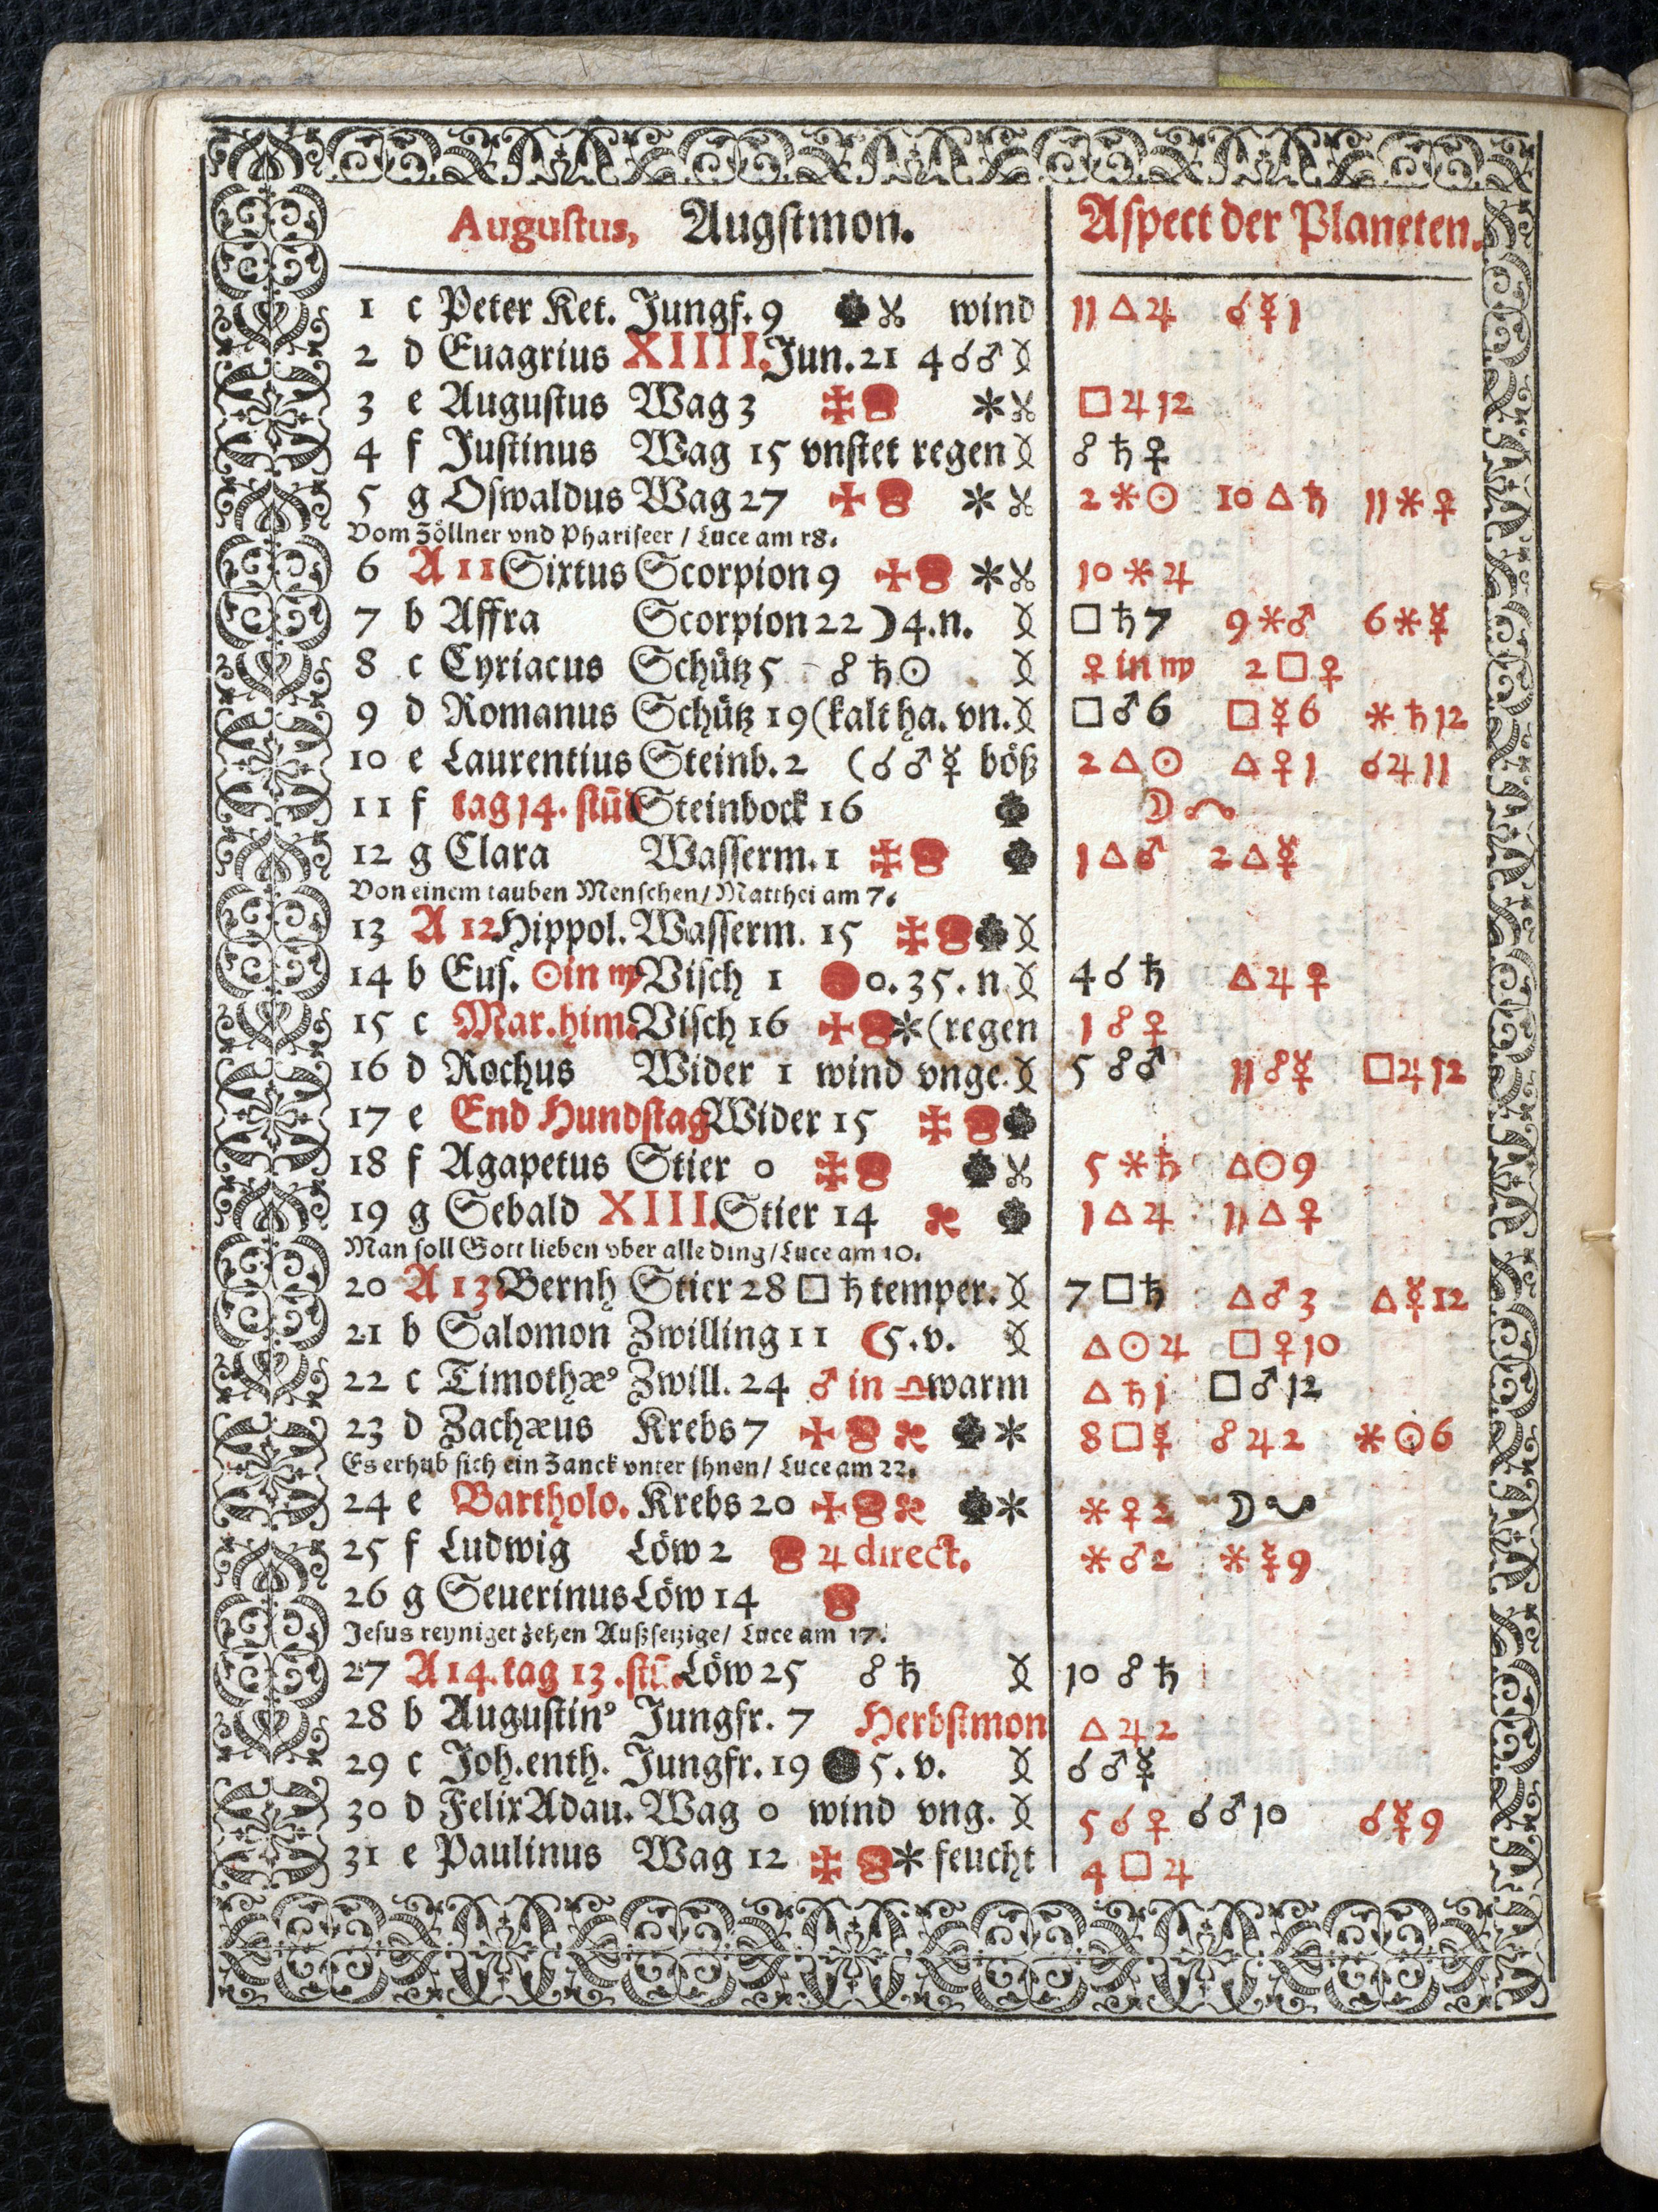 Augustus, Augstmon. Aspect der Planeten.
1 c Peter Ket. Jungf. 9 ♠ ✂ wind 11 △ ♃ ☌ ☿ 1
2 d Euagrius XIIII. Jun. 21 4 ☌ ♂
3 e Augustus Wag 3 ✱ ✂ □ ♃ 12
4 f Justinus Wag 15 vnstet regen ☍ ♄ ♀
5 g Oswaldus Wag 27 ✱ ✂ 2 ⚹ ☉ 10 △ ♄ 11 ⚹ ♀
Vom Zöllner vnd Phariseer / Luce am 18.
6 A 11 Sixtus Scorpion 9 ✱ ✂ 10 ⚹ ♃
7 b Affra Scorpion 22 ☽ 4. n. □ ♄ 7 9 ⚹ ♂ 6 ⚹ ☿
8 c Cyriacus Schütz 5 ☍ ♄ ☉ ♀ in ♍ 2 □ ♀
9 d Romanus Schütz 19 (kalt ha. vn. □ ♂ 6 □ ☿ 6 ⚹ ♄ 12
10 e Laurentius Steinb. 2 (☌ ♂ ☿ böß 2 △ ☉ △ ♀ 1 ☌ ♃ 11
11 f tag 14. stūd Steinbock 16 ♠ ☽ ☊
12 g Clara Wasserm. 1 ♠ 1 △ ♂ 2 △ ☿
Von einem tauben Menschen / Matthei am 7.
13 A 12 Hippol. Wasserm. 15 ♠
14 b Eus. ☉ in ♍ Visch 1 0. 35. n. 4 ☌ ♄ △ ♃ ♀
15 c Mar. him. Visch 16 ✱ (regen 1 ☍ ♀
16 d Rochus Wider 1 wind vnge. 5 ☍ ♂ 11 ☍ ☿ □ ♃ 12
17 e End Hundstag Wider 15 ♠
18 f Agapetus Stier 0 ♠ ✂ 5 ⚹ ♄ △ ☉ 9
19 g Sebald XIII. Stier 14 ♠ 1 △ ♃ 11 △ ♀
Man soll Gott lieben vber alle ding / Luce am 10.
20 A 13 Bernh Stier 28 □ ♄ temper. 7 □ ♄ △ ♂ 3 △ ☿ 12
21 b Salomon Zwilling 11 ☾ 5. v. △ ☉ ♃ □ ♀ 10
22 c Timothæꝰ Zwill. 24 ♂ in ♎ warm △ ♄ 1 □ ♂ 12
23 d Zachæus Krebs 7 ♠ ✱ 8 □ ☿ ☍ ♃ 2 ⚹ ☉ 6
Es erhub sich ein Zanck vnter jhnen / Luce am 22.
24 e Bartholo. Krebs 20 ♠ ✱ ⚹ ♀ 2 ☽ ☋
25 f Ludwig Löw 2 ♃ direct. ⚹ ♂ 2 ⚹ ☿ 9
26 g Seuerinus Löw 14
Jesus reyniget zehen Außsetzige / Luce am 17.
27 A 14. tag 13. stū. Löw 25 ☍ ♄ 10 ☍ ♄
28 b Augustinꝰ Jungfr. 7 Herbstmon △ ♃ 2
29 c Joh. enth. Jungfr. 19 ● 5. v. ☌ ♂ ☿
30 d Felix Adau. Wag 0 wind vng. 5 ☌ ♀ ☌ ♂ 10 ☌ ☿ 9
31 e Paulinus Wag 12 ✱ feucht 4 □ ♃